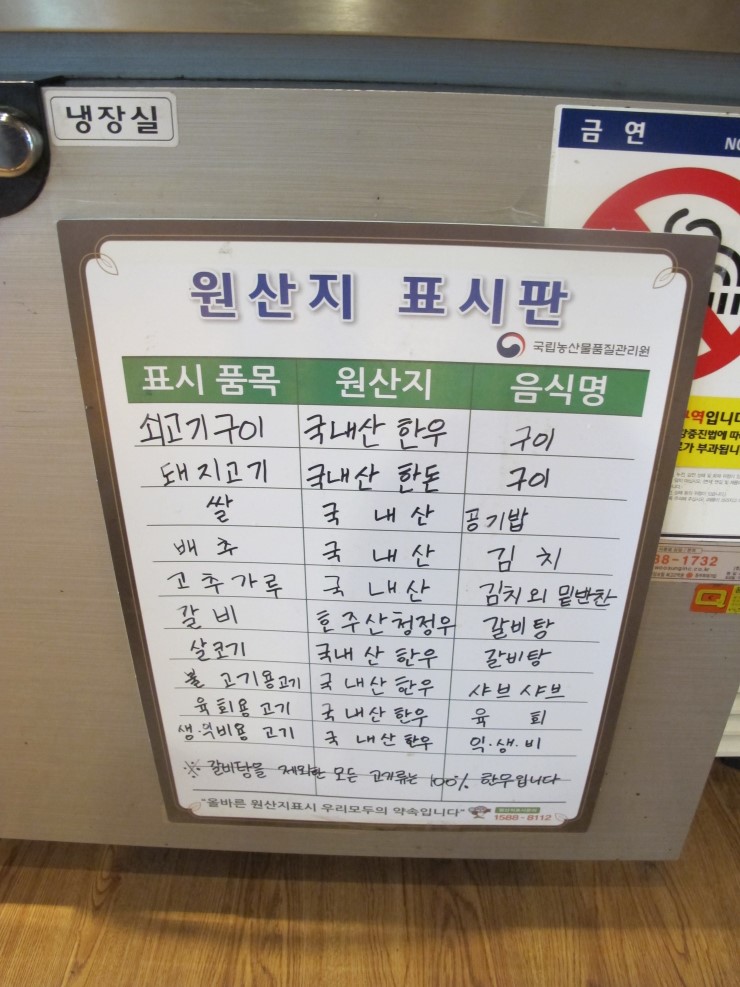 냉장실
금 연
원산지 표시판
국립농산물품질관리원
표시 품목 원산지 음식명
쇠고기구이 국내산 한우 구이
돼지고기 국내산 한돈 구이
쌀 국 내 산 공기밥
배 추 국 내 산 김 치
고추가루 국 내산 김치외 밑반찬
갈 비 호주산청정우 갈비탕
살코기 국내산 한우 갈비탕
불 고기용고기 국내산 한우 샤브샤브
육회용 고기 국내산 한우 육 회
고기 국 내산 한우 익·생·비
※ 갈비탕을 제외한 모든 고기류는 100% 한우입니다
"올바른 원산지표시 우리모두의 약속입니다"
1588-8112
역입니다
가 부과됩니
38-1732